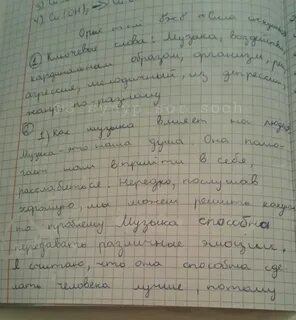 4) Cu(OH)2 →
① Ключевые слова: Музыка, воздейств
кардинальным образом, организм,
агрессия, мелодичный, из депрессии,
по-разному
②
1) Как музыка влияет на людей
Музыка - это наша душа. Она помо-
гает нам прийти в себя,
расслабиться. Нередко, послушав
хорошую, мы можем решить какую
то проблему Музыка способна
передавать различные эмоции.
Я считаю, что она способна сде
лать человека лучше, потому